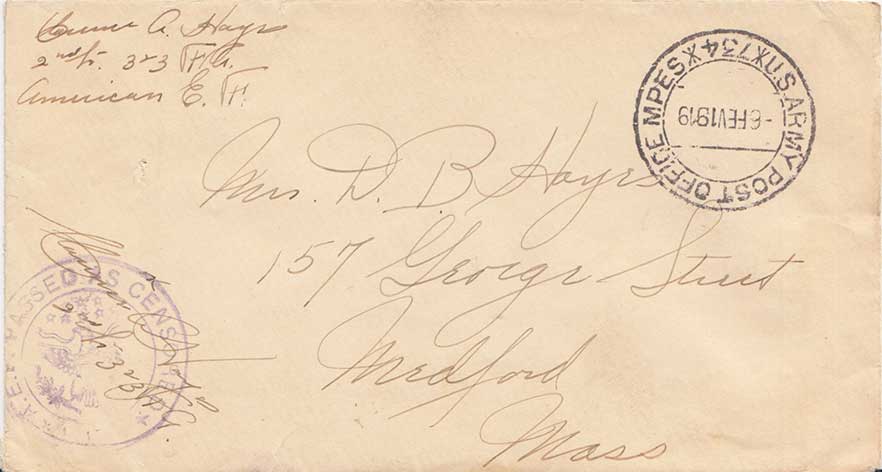 A. Hayes
2nd Lt. 323 F.A.
American E. F.
U.S. ARMY POST OFFICE M.P.E.S. * 734 *
-6 FEV 1919
Mrs. D. B. Hayes
157 George Street
Medford
Mass
A.E.F. PASSED AS CENSORED
2nd Lt. 323 F.A.